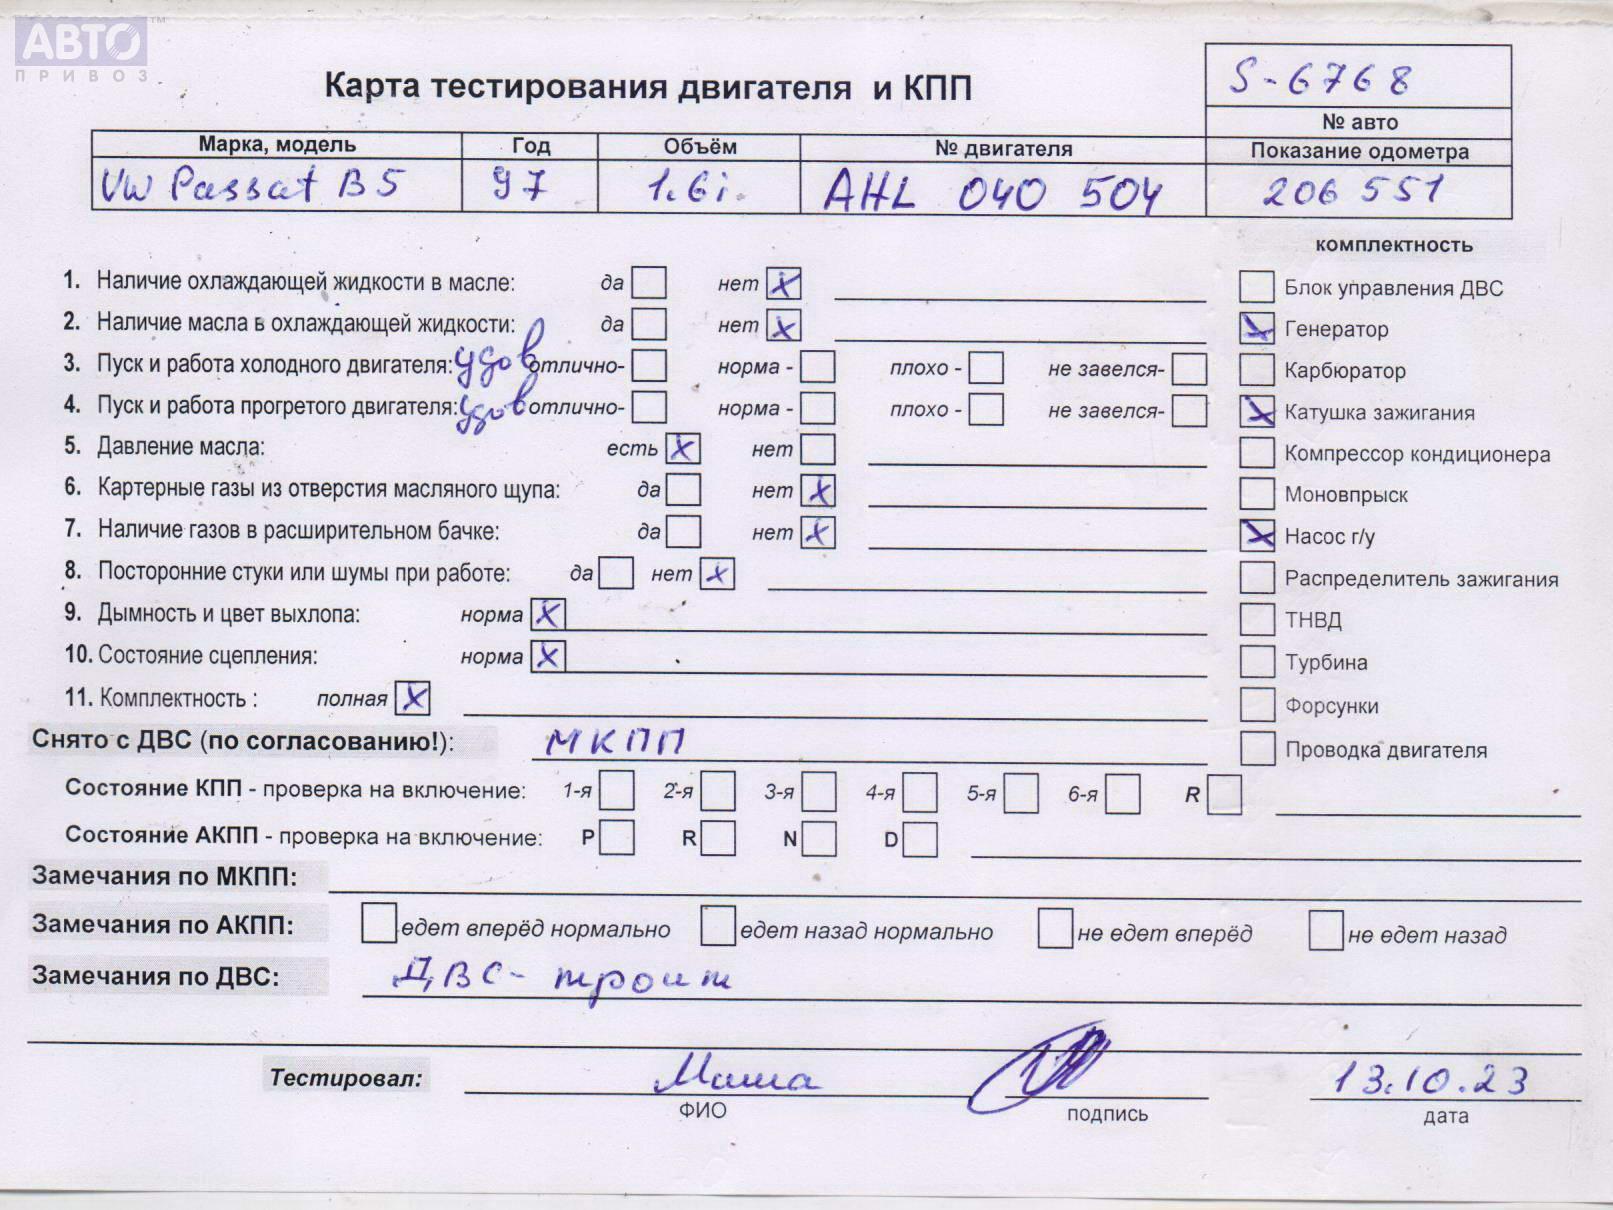 АВТО ™
ПРИВОЗ
Карта тестирования двигателя и КПП
S-6768
№ авто
Марка, модель Год Объём № двигателя Показание одометра
VW Passat B5 97 1.6i. AHL 040 504 206 551
комплектность
1. Наличие охлаждающей жидкости в масле: да нет X
Блок управления ДВС
2. Наличие масла в охлаждающей жидкости: да нет X
X Генератор
3. Пуск и работа холодного двигателя: удов отлично- норма - плохо - не завелся-
Карбюратор
4. Пуск и работа прогретого двигателя: удов отлично- норма - плохо - не завелся-
X Катушка зажигания
5. Давление масла: есть X нет
Компрессор кондиционера
6. Картерные газы из отверстия масляного щупа: да нет X
Моновпрыск
7. Наличие газов в расширительном бачке: да нет X
X Насос г/у
8. Посторонние стуки или шумы при работе: да нет X
Распределитель зажигания
9. Дымность и цвет выхлопа: норма X
ТНВД
10. Состояние сцепления: норма X
Турбина
11. Комплектность : полная X
Форсунки
Снято с ДВС (по согласованию!): МКПП
Проводка двигателя
Состояние КПП - проверка на включение: 1-я 2-я 3-я 4-я 5-я 6-я R
Состояние АКПП - проверка на включение: P R N D
Замечания по МКПП:
Замечания по АКПП: едет вперёд нормально едет назад нормально не едет вперёд не едет назад
Замечания по ДВС: ДВС- троит
Тестировал: Миша 13.10.23
ФИО подпись дата